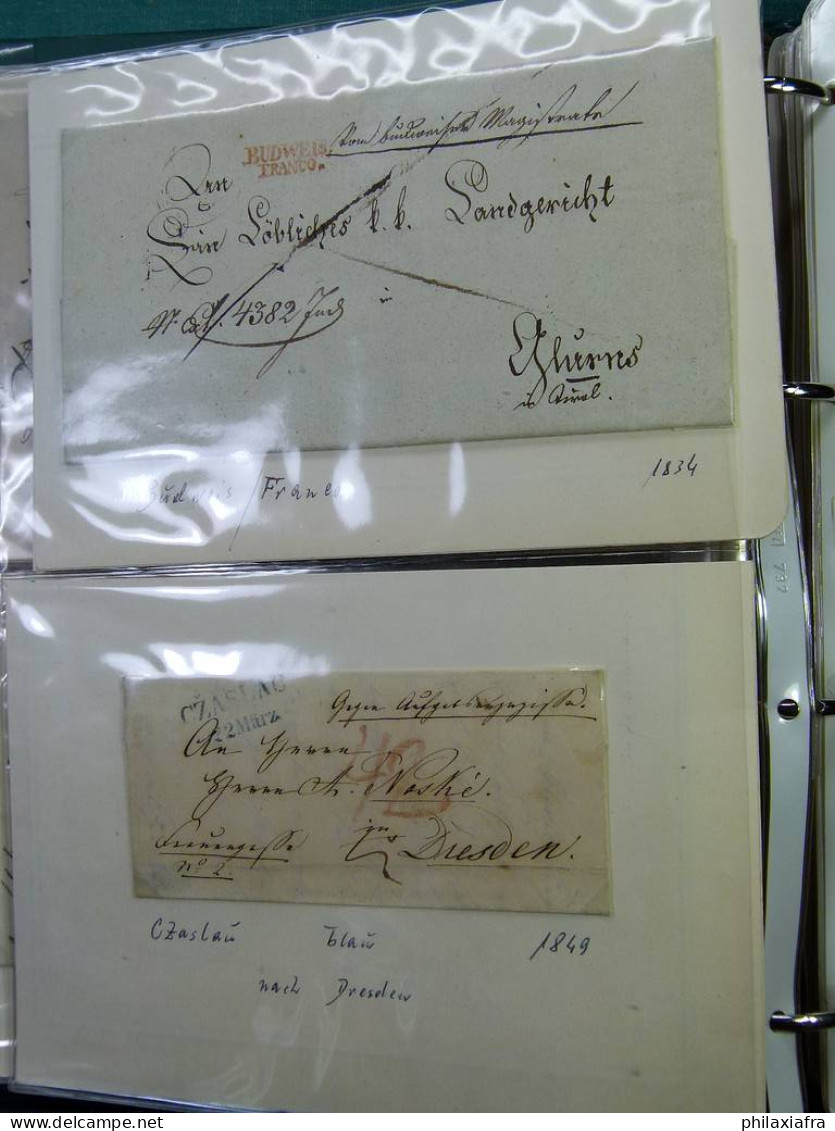 BUDWEIS
FRANCO.
Vom budweiser Magistrate
An
Ein Löbliches k. k. Landgericht
4382 Jud
in
Glurns
in Tirol.
Budweis / Franco
1834
CŽASLAU
22 März
Gegen Aufgabsrezepisse.
An Herrn
Herrn A. Noské.
in
Dresden.
No 2.
Czaslau blau 1849
nach Dresden
philaxiafra